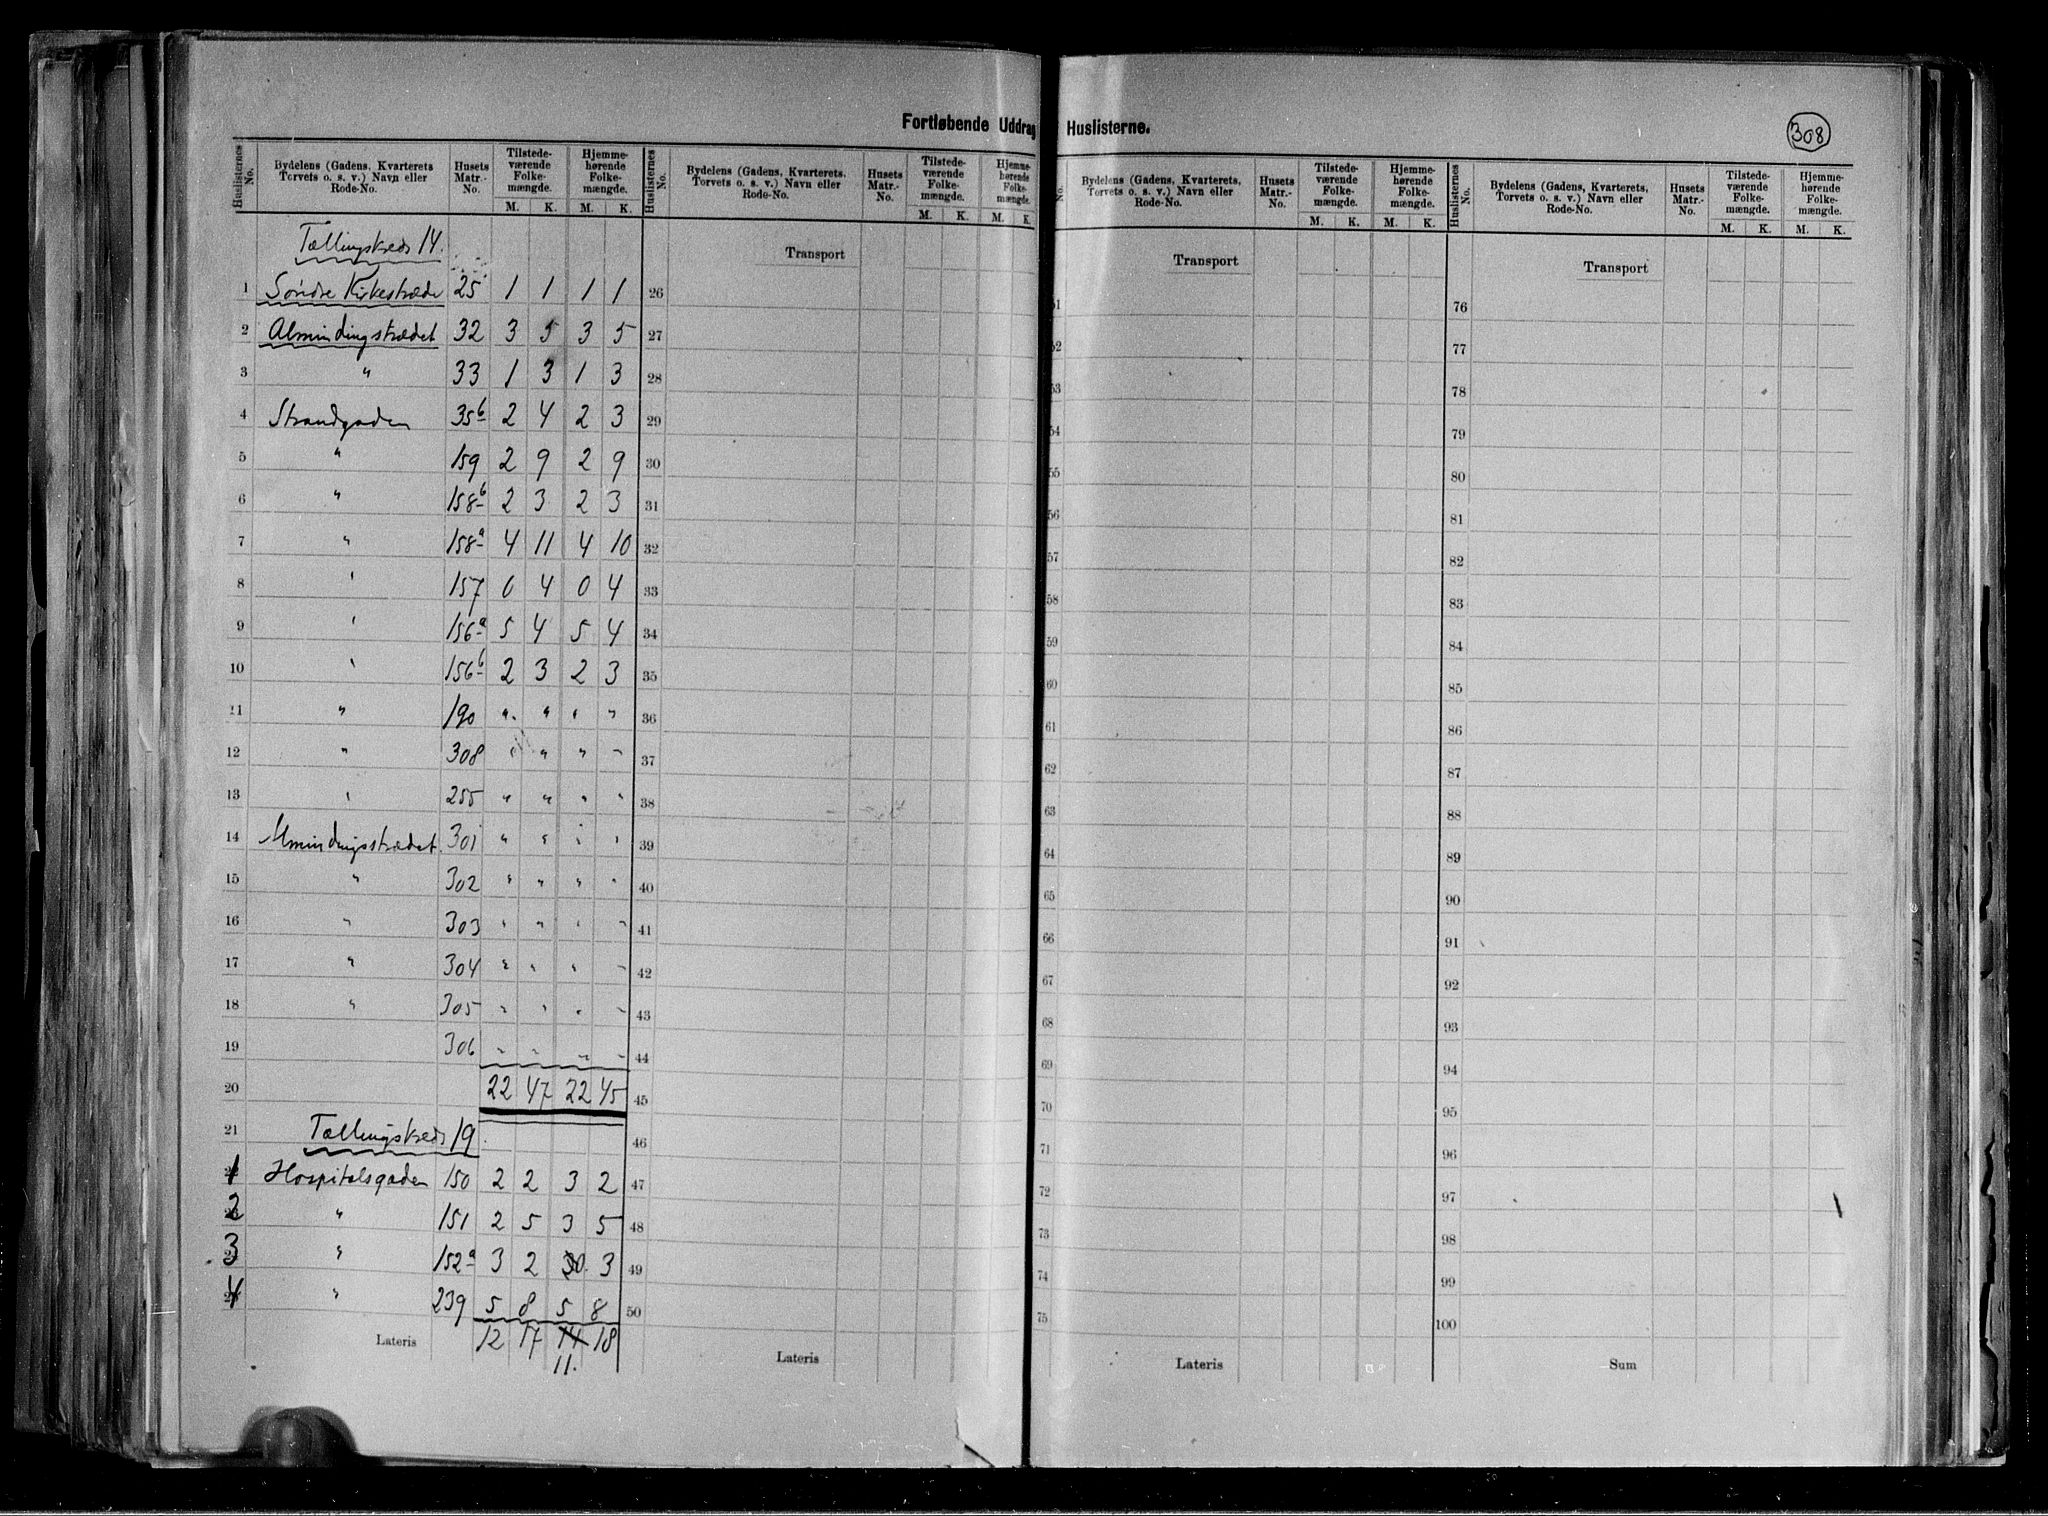 Fortløbende Uddrag Huslisterne.
308
Huslisternes No. Bydelens (Gadens, Kvarterets Torvets o. s. v.) Navn eller Rode-No. Husets Matr.-No. Tilstede-værende Folke-mængde. M. K. Hjemme-hørende Folke-mængde. M. K.
Tællingskreds 14.
1 Søndre Kirkestræde 25 1 1 1 1
2 Almindingstrædet 32 3 5 3 5
3 " 33 1 3 1 3
4 Strandgaden 35b 2 4 2 3
5 " 159 2 9 2 9
6 " 158b 2 3 2 3
7 " 158a 4 11 4 10
8 " 157 0 4 0 4
9 " 156a 5 4 5 4
10 " 156b 2 3 2 3
11 " 190 " " " "
12 " 308 " " " "
13 " 255 " " " "
14 Almindingsstrædet 301 " " " "
15 " 302 " " " "
16 " 303 " " " "
17 " 304 " " " "
18 " 305 " " " "
19 306 " " " "
20 22 47 22 45
21 Tællingskreds 19.
1 Hospitalsgaden 150 2 2 3 2
2 " 151 2 5 3 5
3 " 152a 3 2 0. 3
4 " 239 5 8 5 8
Lateris 12 17 14 18
11.
Huslisternes No. Bydelens (Gadens, Kvarterets, Torvets o. s. v.) Navn eller Rode-No. Husets Matr.-No. Tilstede-værende Folke-mængde. M. K. Hjemme-hørende Folke-mængde. M. K.
Transport
26
27
28
29
30
31
32
33
34
35
36
37
38
39
40
41
42
43
44
45
46
47
48
49
50
Lateris
No. Bydelens (Gadens, Kvarterets, Torvets o. s. v.) Navn eller Rode-No. Husets Matr.-No. Tilstede-værende Folke-mængde. M. K. Hjemme-hørende Folke-mængde. M. K.
Transport
51
52
53
54
55
56
57
58
59
60
61
62
63
64
65
66
67
68
69
70
71
72
73
74
75
Lateris
Huslisternes No. Bydelens (Gadens, Kvarterets, Torvets o. s. v.) Navn eller Rode-No. Husets Matr.-No. Tilstede-værende Folke-mængde. M. K. Hjemme-hørende Folke-mængde. M. K.
Transport
76
77
78
79
80
81
82
83
84
85
86
87
88
89
90
91
92
93
94
95
96
97
98
99
100
Sum